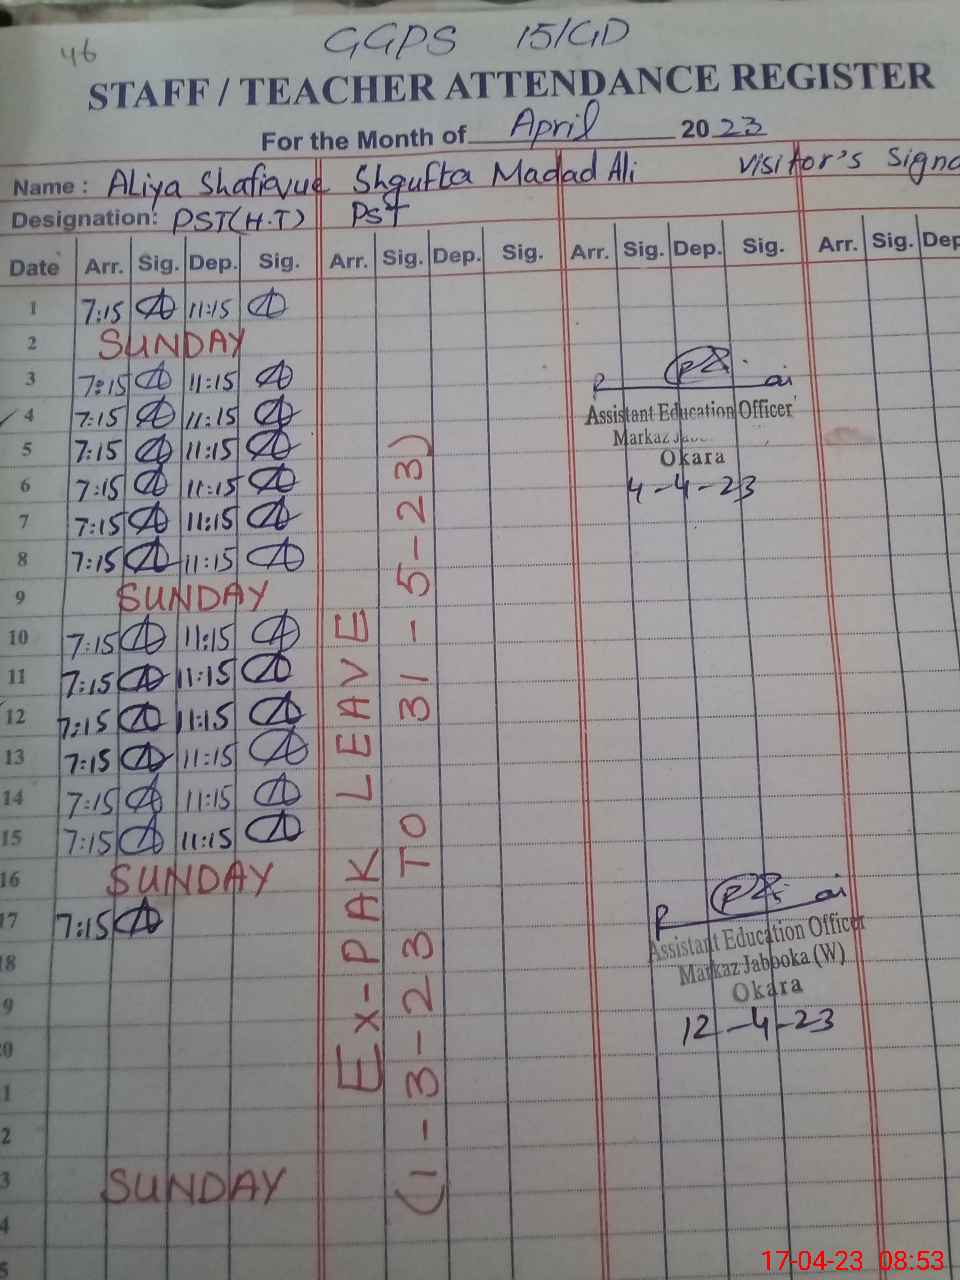 46
GGPS 15/GD
STAFF / TEACHER ATTENDANCE REGISTER
For the Month of April 2023
Name : Aliya Shafique Shgufta Madad Ali Visitor's Signa
Designation: PST(H.T) PST
Date Arr. Sig. Dep. Sig. Arr. Sig. Dep. Sig. Arr. Sig. Dep. Sig. Arr. Sig. Dep
1 7:15 11:15
2 SUNDAY
3 7:15 11:15
4 7:15 11:15
5 7:15 11:15
6 7:15 11:15
7 7:15 11:15
8 7:15 11:15
9 SUNDAY
10 7:15 11:15
11 7:15 11:15
12 7:15 11:15
13 7:15 11:15
14 7:15 11:15
15 7:15 11:15
16 SUNDAY
17 7:15
18
9
0
1
2
3 SUNDAY
4
5
Ex-PAK LEAVE
(1-3-23 TO 31-5-23)
Assistant Education Officer
Markaz
Okara
4-4-23
Assistant Education Officer
Markaz Jabboka (W)
Okara
12-4-23
17-04-23 08:53